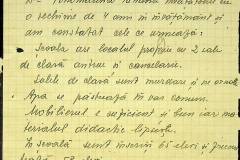 o vechime de 4 ani în învățământ și
am constatat cele ce urmează:
Școala are localul propriu cu 2 săli
de clasă antreu și cancelarie.
Salile de clasă sunt murdare și ne
Apa se păstrează în vas comun.
Mobilierul e suficient și bun iar ma-
terialul didactic lipsește.
În școală sunt înscriși 61 elevi și